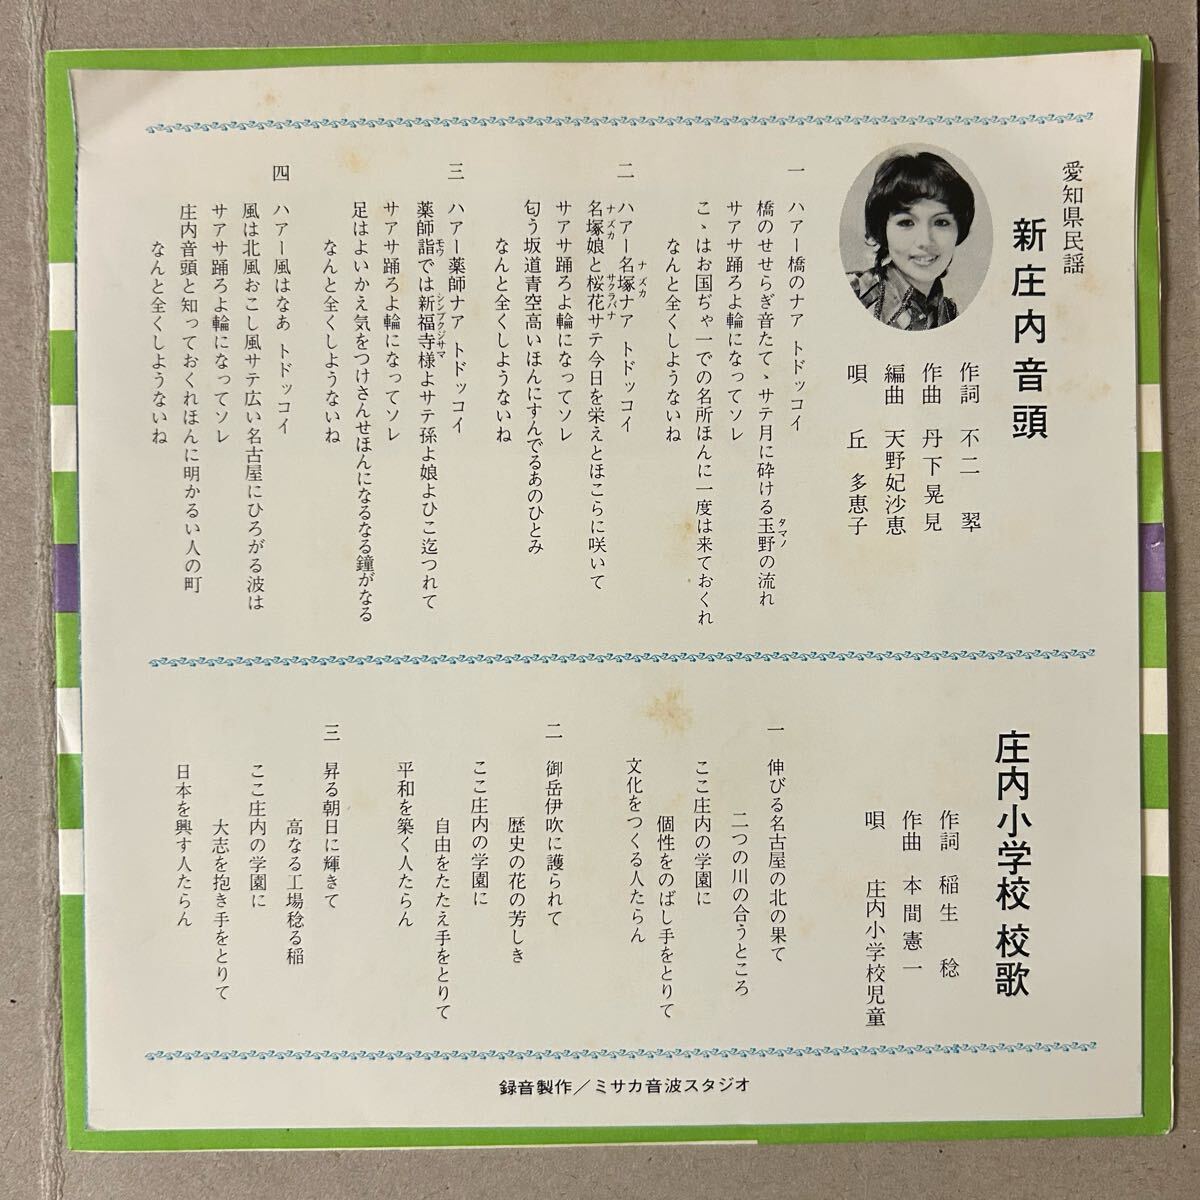 愛知県民謡
新庄内音頭
作詞 不二 翠
作曲 丹下晃見
編曲 天野妃沙恵
唄 丘 多恵子
一 ハアー橋のナア トドッコイ
橋のせせらぎ音たてゝサテ月に砕ける玉野の流れ
タマノ
サアサ踊ろよ輪になってソレ
こゝはお国ぢゃ一での名所ほんに一度は来ておくれ
なんと全くしようないね
二 ハアー名塚ナア トドッコイ
ナズカ
名塚娘と桜花サテ今日を栄えとほこらに咲いて
ナズカ サクラバナ
サアサ踊ろよ輪になってソレ
匂う坂道青空高いほんにすんでるあのひとみ
なんと全くしようないね
三 ハアー薬師ナア トドッコイ
薬師詣では新福寺様よサテ孫よ娘よひこ迄つれて
モウ シンプクジサマ
サアサ踊ろよ輪になってソレ
足はよいかえ気をつけさんせほんになるなる鐘がなる
なんと全くしようないね
四 ハアー風はなあ トドッコイ
風は北風おこし風サテ広い名古屋にひろがる波は
サアサ踊ろよ輪になってソレ
庄内音頭と知っておくれほんに明かるい人の町
なんと全くしようないね
庄内小学校 校歌
作詞 稲生 稔
作曲 本間憲一
唄 庄内小学校児童
一 伸びる名古屋の北の果て
二つの川の合うところ
ここ庄内の学園に
個性をのばし手をとりて
文化をつくる人たらん
二 御岳伊吹に護られて
歴史の花の芳しき
ここ庄内の学園に
自由をたたえ手をとりて
平和を築く人たらん
三 昇る朝日に輝きて
高なる工場稔る稲
ここ庄内の学園に
大志を抱き手をとりて
日本を興す人たらん
録音製作／ミサカ音波スタジオ